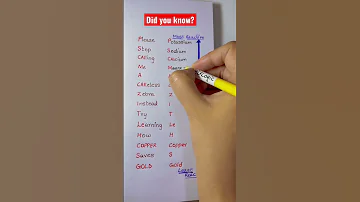 Did you know?
Most Reactive
Please Potassium
Stop Sodium
Calling Calcium
Me
A
Careless
Zebra Z
Instead I
Try T
Learning Le
How H
COPPER Copper
Saves S
GOLD Gold